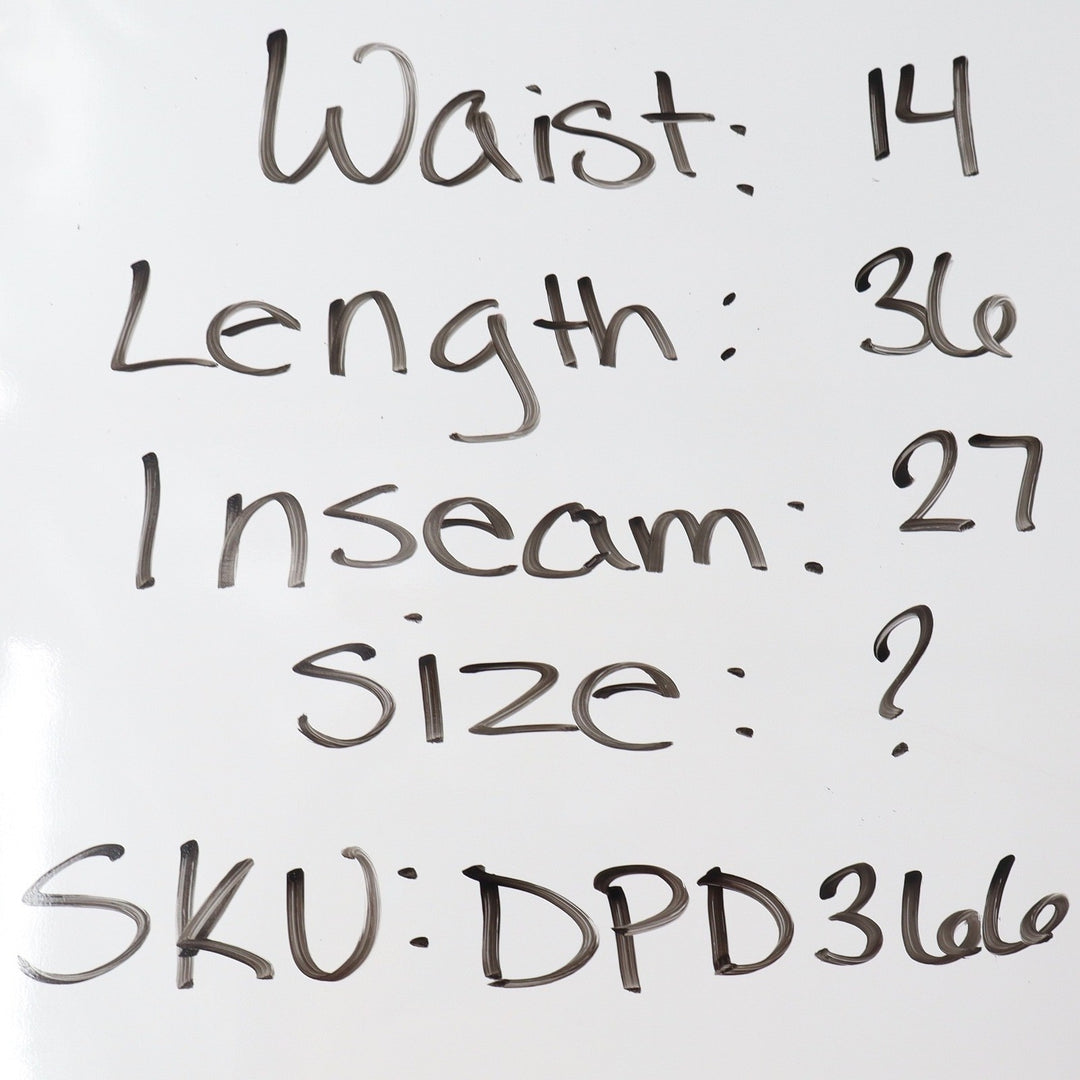 Waist: 14
Length: 36
Inseam: 27
Size: ?
SKU: DPD366